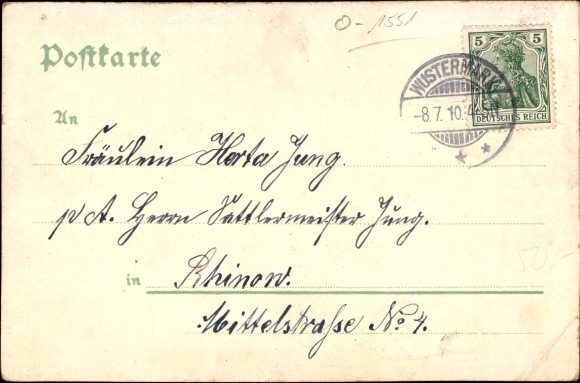 O-1551
5 5
DEUTSCHES REICH
Postkarte
WUSTERMARK
-8.7.10.
An
Fräulein Herta Jung.
p A. Herrn Sattlermeister Jung.
50,-
in Rhinow.
Mittelstraße No 4.